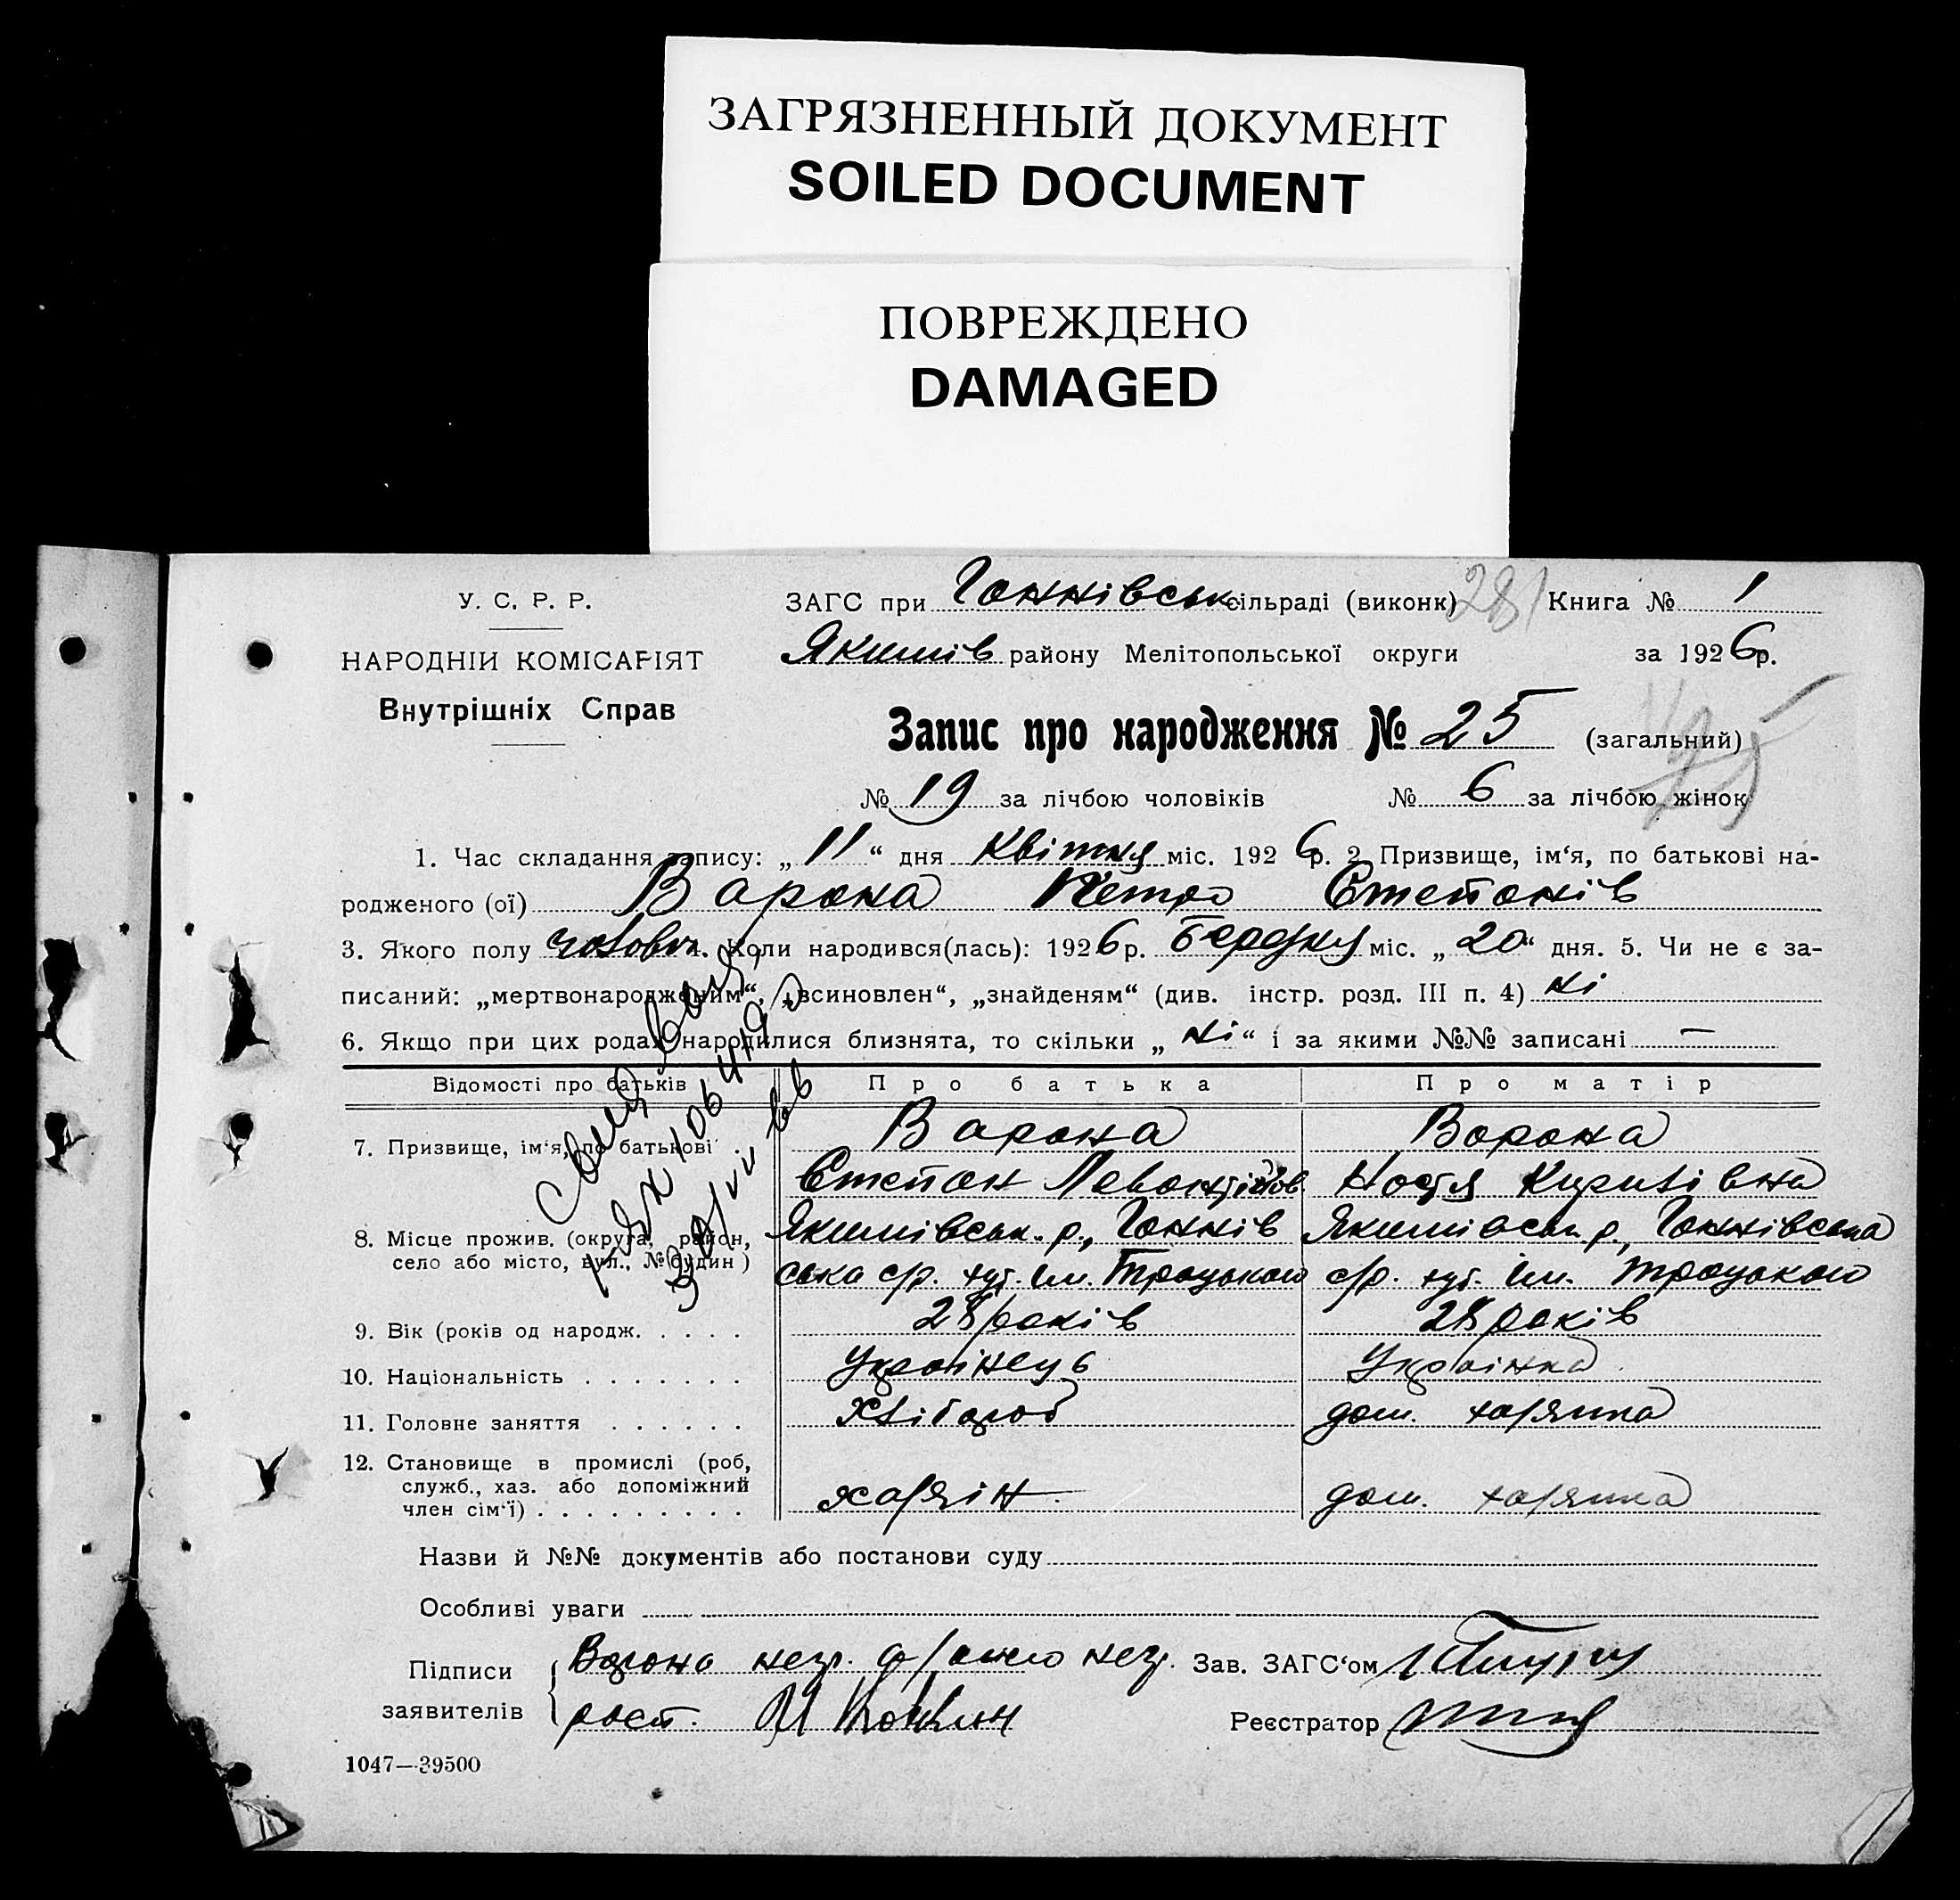 ЗАГРЯЗНЕННЫЙ ДОКУМЕНТ
SOILED DOCUMENT
ПОВРЕЖДЕНО
DAMAGED
У. С. Р. Р.
НАРОДНІЙ КОМІСАРІЯТ
Внутрішніх Справ
ЗАГС при Ганнівськ сільраді (виконк) 281 Книга № 1
Якимів району Мелітопольської округи за 1926 р.
Запис про народження № 25 (загальний)
№ 19 за лічбою чоловіків № 6 за лічбою жінок
1. Час складання запису: „ 11 “ дня Квітня міс. 1926 р. 2 Призвище, ім‘я, по батькові на-
родженого (ої) Варона Петро Степанів
3. Якого полу чоловіч 4. Коли народився(лась): 1926 р. Березня міс. „ 20 “ дня. 5. Чи не є за-
писаний: „мертвонародженим“, „всиновлен“, „знайденям“ (див. інстр. розд. III п. 4) ні
6. Якщо при цих родах народилися близнята, то скільки „ ні “ і за якими №№ записані —
Відомості про батьків Про батька Про матір
7. Призвище, ім‘я, по батькові Варона Ворона
Степан Настя Кирилівна
8. Місце прожив. (округа, район, Якимівськ. р., Ганнів Якимівськ. р., Ганнівська
село або місто, вул., № будин) ська с/р. хут. ім. Троцького с/р. хут. ім. Троцького
9. Вік (років од народж. 28 років 28 років
10. Національність Українець Українка
11. Головне заняття Хлібороб дом. хазяйка
12. Становище в промислі (роб, служб., хаз. або допоміжний член сім‘ї) хазяїн дом. хазяйка
Назви й №№ документів або постанови суду
Особливі уваги
Підписи заявителів Ворона нег.
Зав. ЗАГС‘ом
Реєстратор
1047—39500